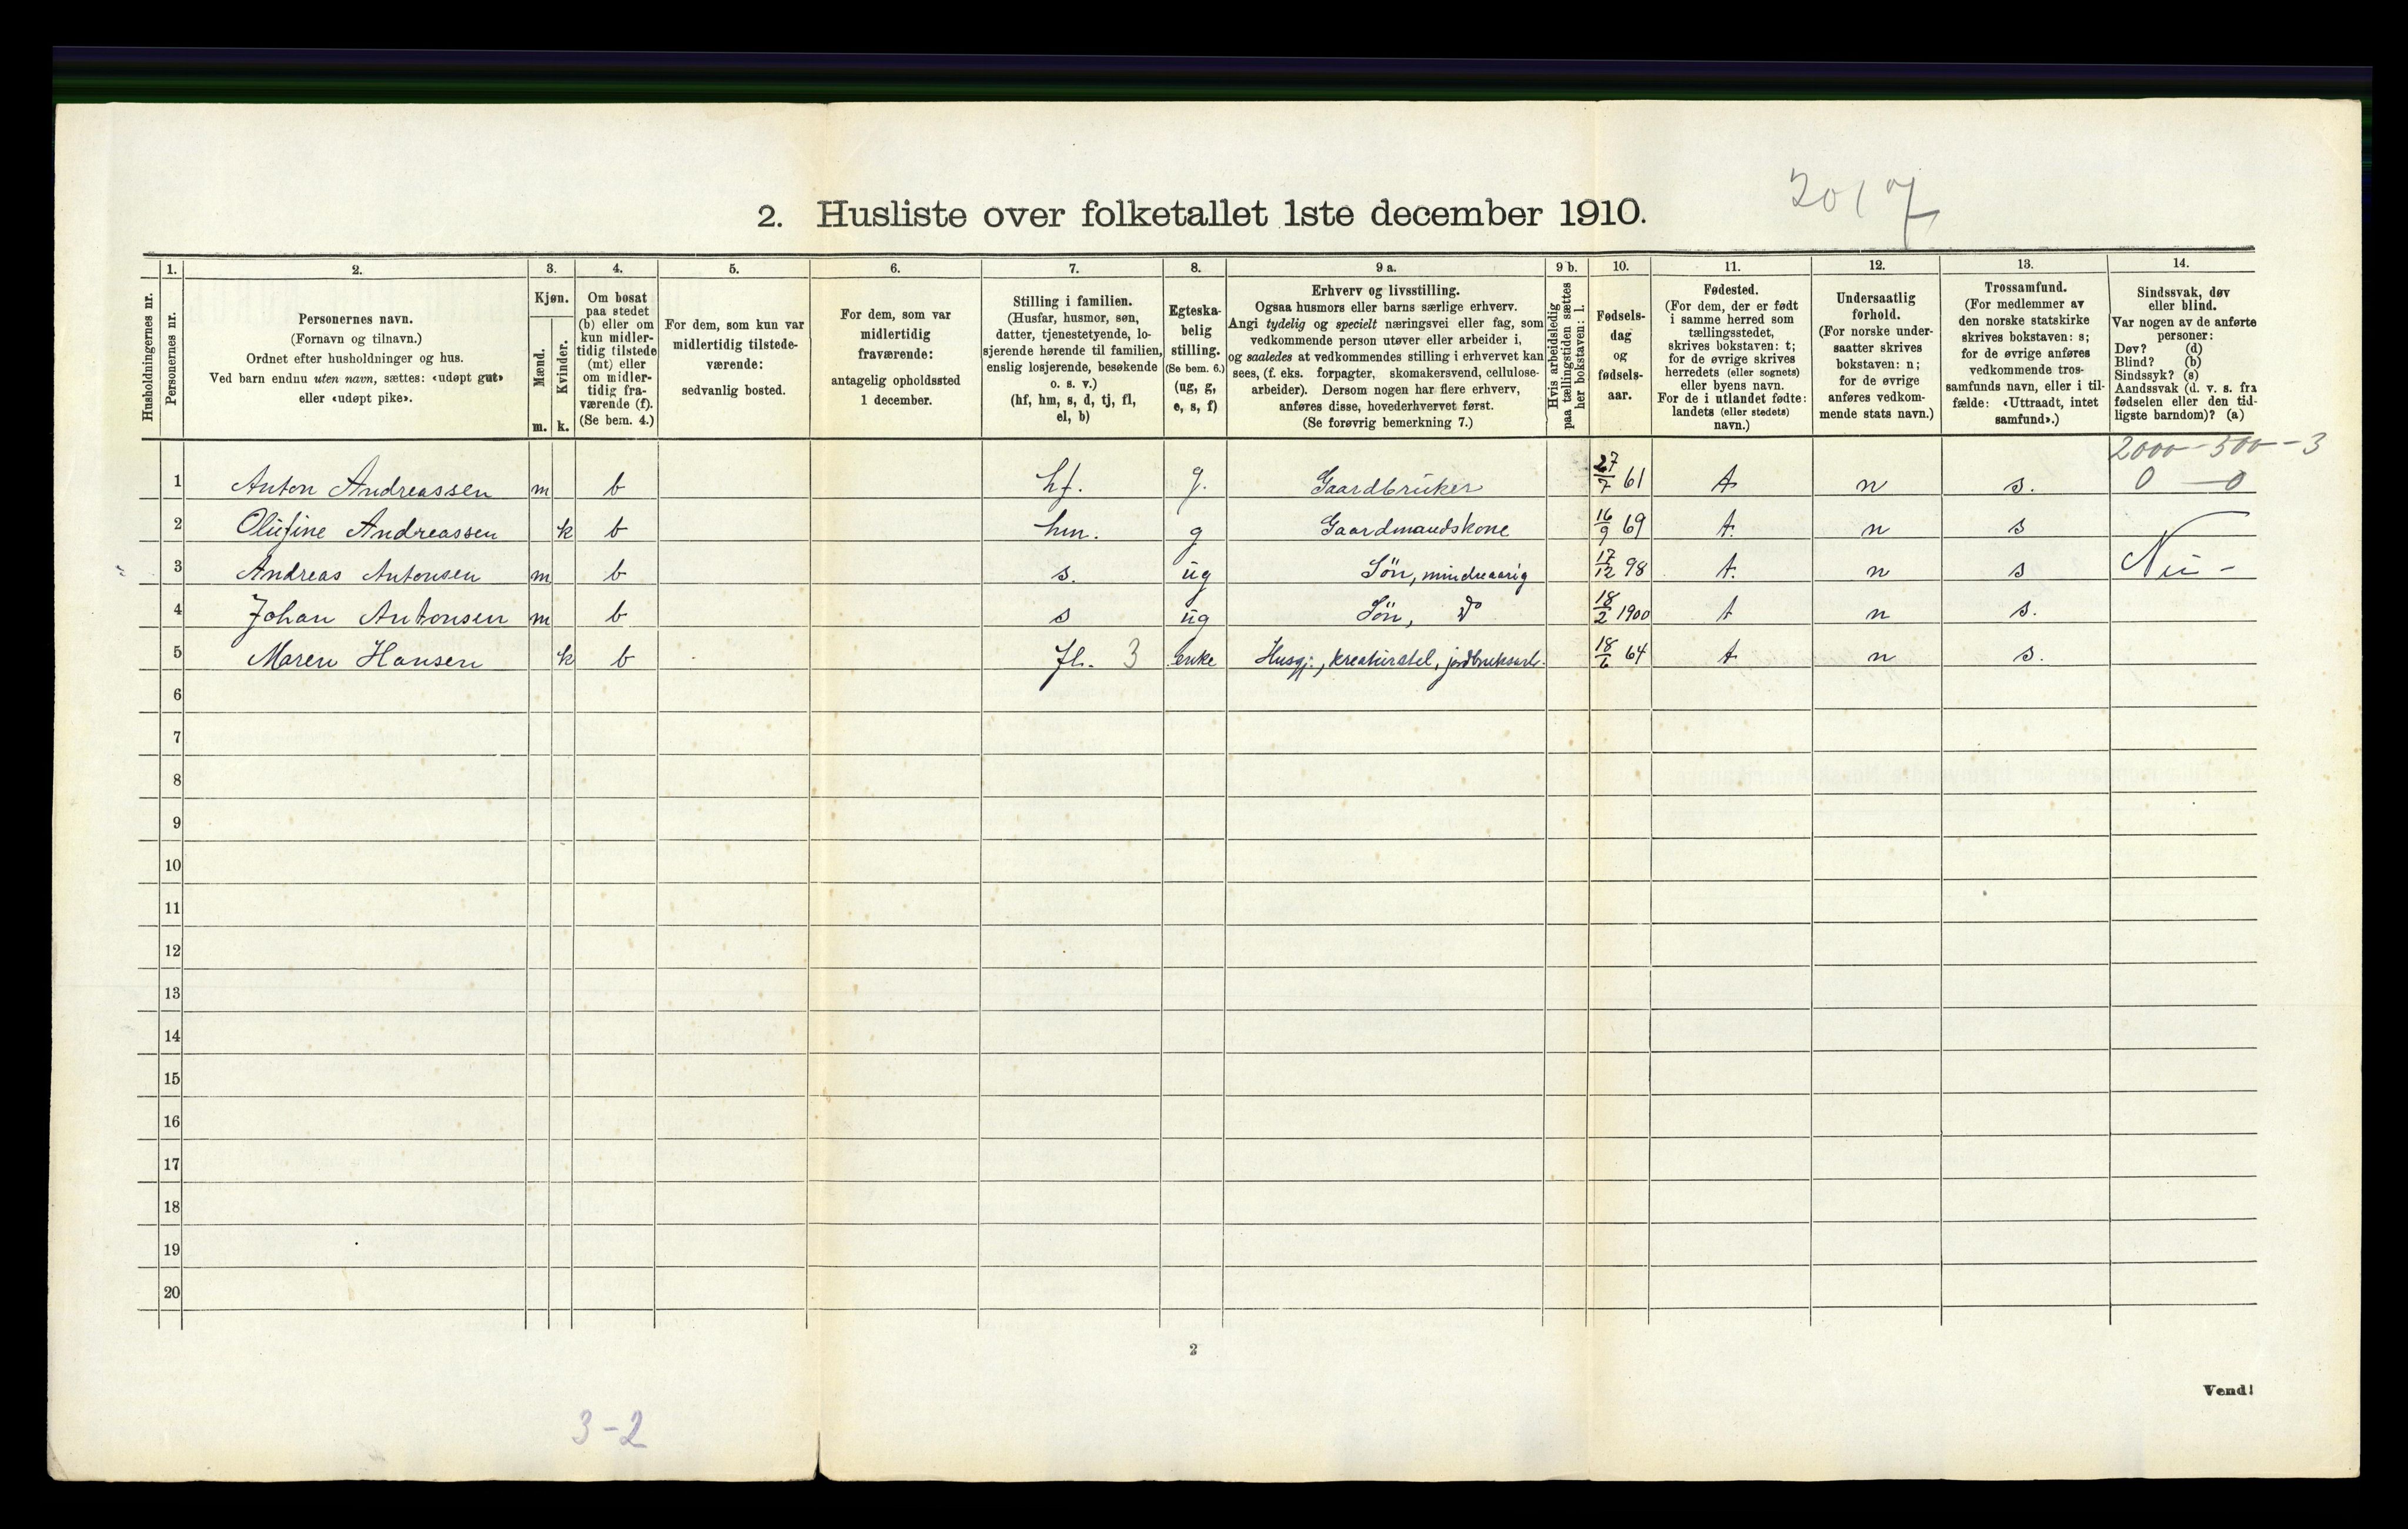 2017
2. Husliste over folketallet 1ste december 1910.
Husholdningernes nr.
1.
Personernes nr.
2.
Personernes navn.
(Fornavn og tilnavn.)
Ordnet efter husholdninger og hus.
Ved barn endnu uten navn, sættes: «udøpt gut»
eller «udøpt pike».
3.
Kjøn.
Mænd.
Kvinder.
m. k.
4.
Om bosat
paa stedet
(b) eller om
kun midler-
tidig tilstede
(mt) eller
om midler-
tidig fra-
værende (f).
(Se bem. 4.)
5.
For dem, som kun var
midlertidig tilstede-
værende:
sedvanlig bosted.
6.
For dem, som var
midlertidig
fraværende:
antagelig opholdssted
1 december.
7.
Stilling i familien.
(Husfar, husmor, søn,
datter, tjenestetyende, lo-
sjerende hørende til familien,
enslig losjerende, besøkende
o. s. v.)
(hf, hm, s, d, tj, fl,
el, b)
8.
Egteska-
belig
stilling.
(Se bem. 6.)
(ug, g,
e, s, f)
9 a.
Erhverv og livsstilling.
Ogsaa husmors eller barns særlige erhverv.
Angi tydelig og specielt næringsvei eller fag, som
vedkommende person utøver eller arbeider i,
og saaledes at vedkommendes stilling i erhvervet kan
sees, (f. eks. forpagter, skomakersvend, cellulose-
arbeider). Dersom nogen har flere erhverv,
anføres disse, hovederhvervet først.
(Se forøvrig bemerkning 7.)
9 b.
Hvis arbeidsledig
paa tællingstiden sættes
her bokstaven: l.
10.
Fødsels-
dag
og
fødsels-
aar.
11.
Fødested.
(For dem, der er født
i samme herred som
tællingsstedet,
skrives bokstaven: t;
for de øvrige skrives
herredets (eller sognets)
eller byens navn.
For de i utlandet fødte:
landets (eller stedets)
navn.)
12.
Undersaatlig
forhold.
(For norske under-
saatter skrives
bokstaven: n;
for de øvrige
anføres vedkom-
mende stats navn.)
13.
Trossamfund.
(For medlemmer av
den norske statskirke
skrives bokstaven: s;
for de øvrige anføres
vedkommende tros-
samfunds navn, eller i til-
fælde: «Uttraadt, intet
samfund».)
14.
Sindssvak, døv
eller blind.
Var nogen av de anførte
personer:
Døv? (d)
Blind? (b)
Sindssyk? (s)
Aandssvak (d. v. s. fra
fødselen eller den tid-
ligste barndom)? (a)
2000-500-3
1 Anton Andreassen m b hf. g. Gaardbruker 27/7 61 t n s. 0 - 0
2 Olufine Andreassen k b hm. g Gaardmandskone 16/9 69 t. n s
3 Andreas Antonsen m b s. ug Søn, mindreaarig 17/12 98 t. n s
4 Johan Antonsen m b s ug Søn, do 18/2 1900 t n s.
5 Maren Hansen k b fl. 3 enke Husgj., kreaturstel, jordbruksarb. 18/6 64 t n s.
6
7
8
9
10
11
12
13
14
15
16
17
18
19
20
2
Vend!
3-2